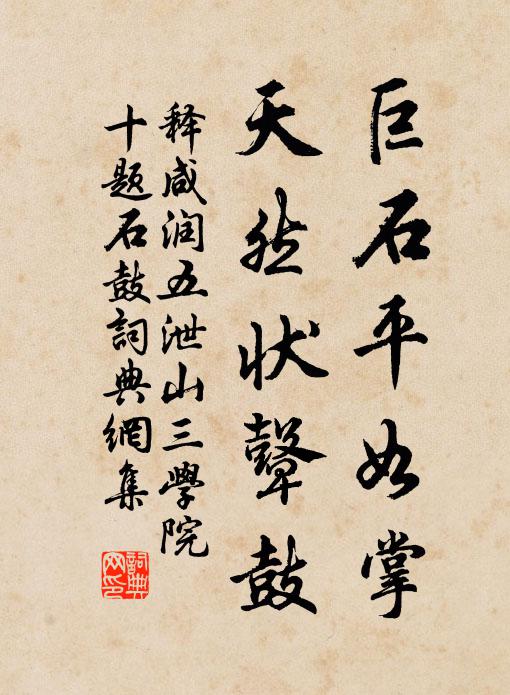 巨石平如掌
天然状鼙鼓
释咸润五泄山三學院
十题石鼓詞典網集
詞典網印